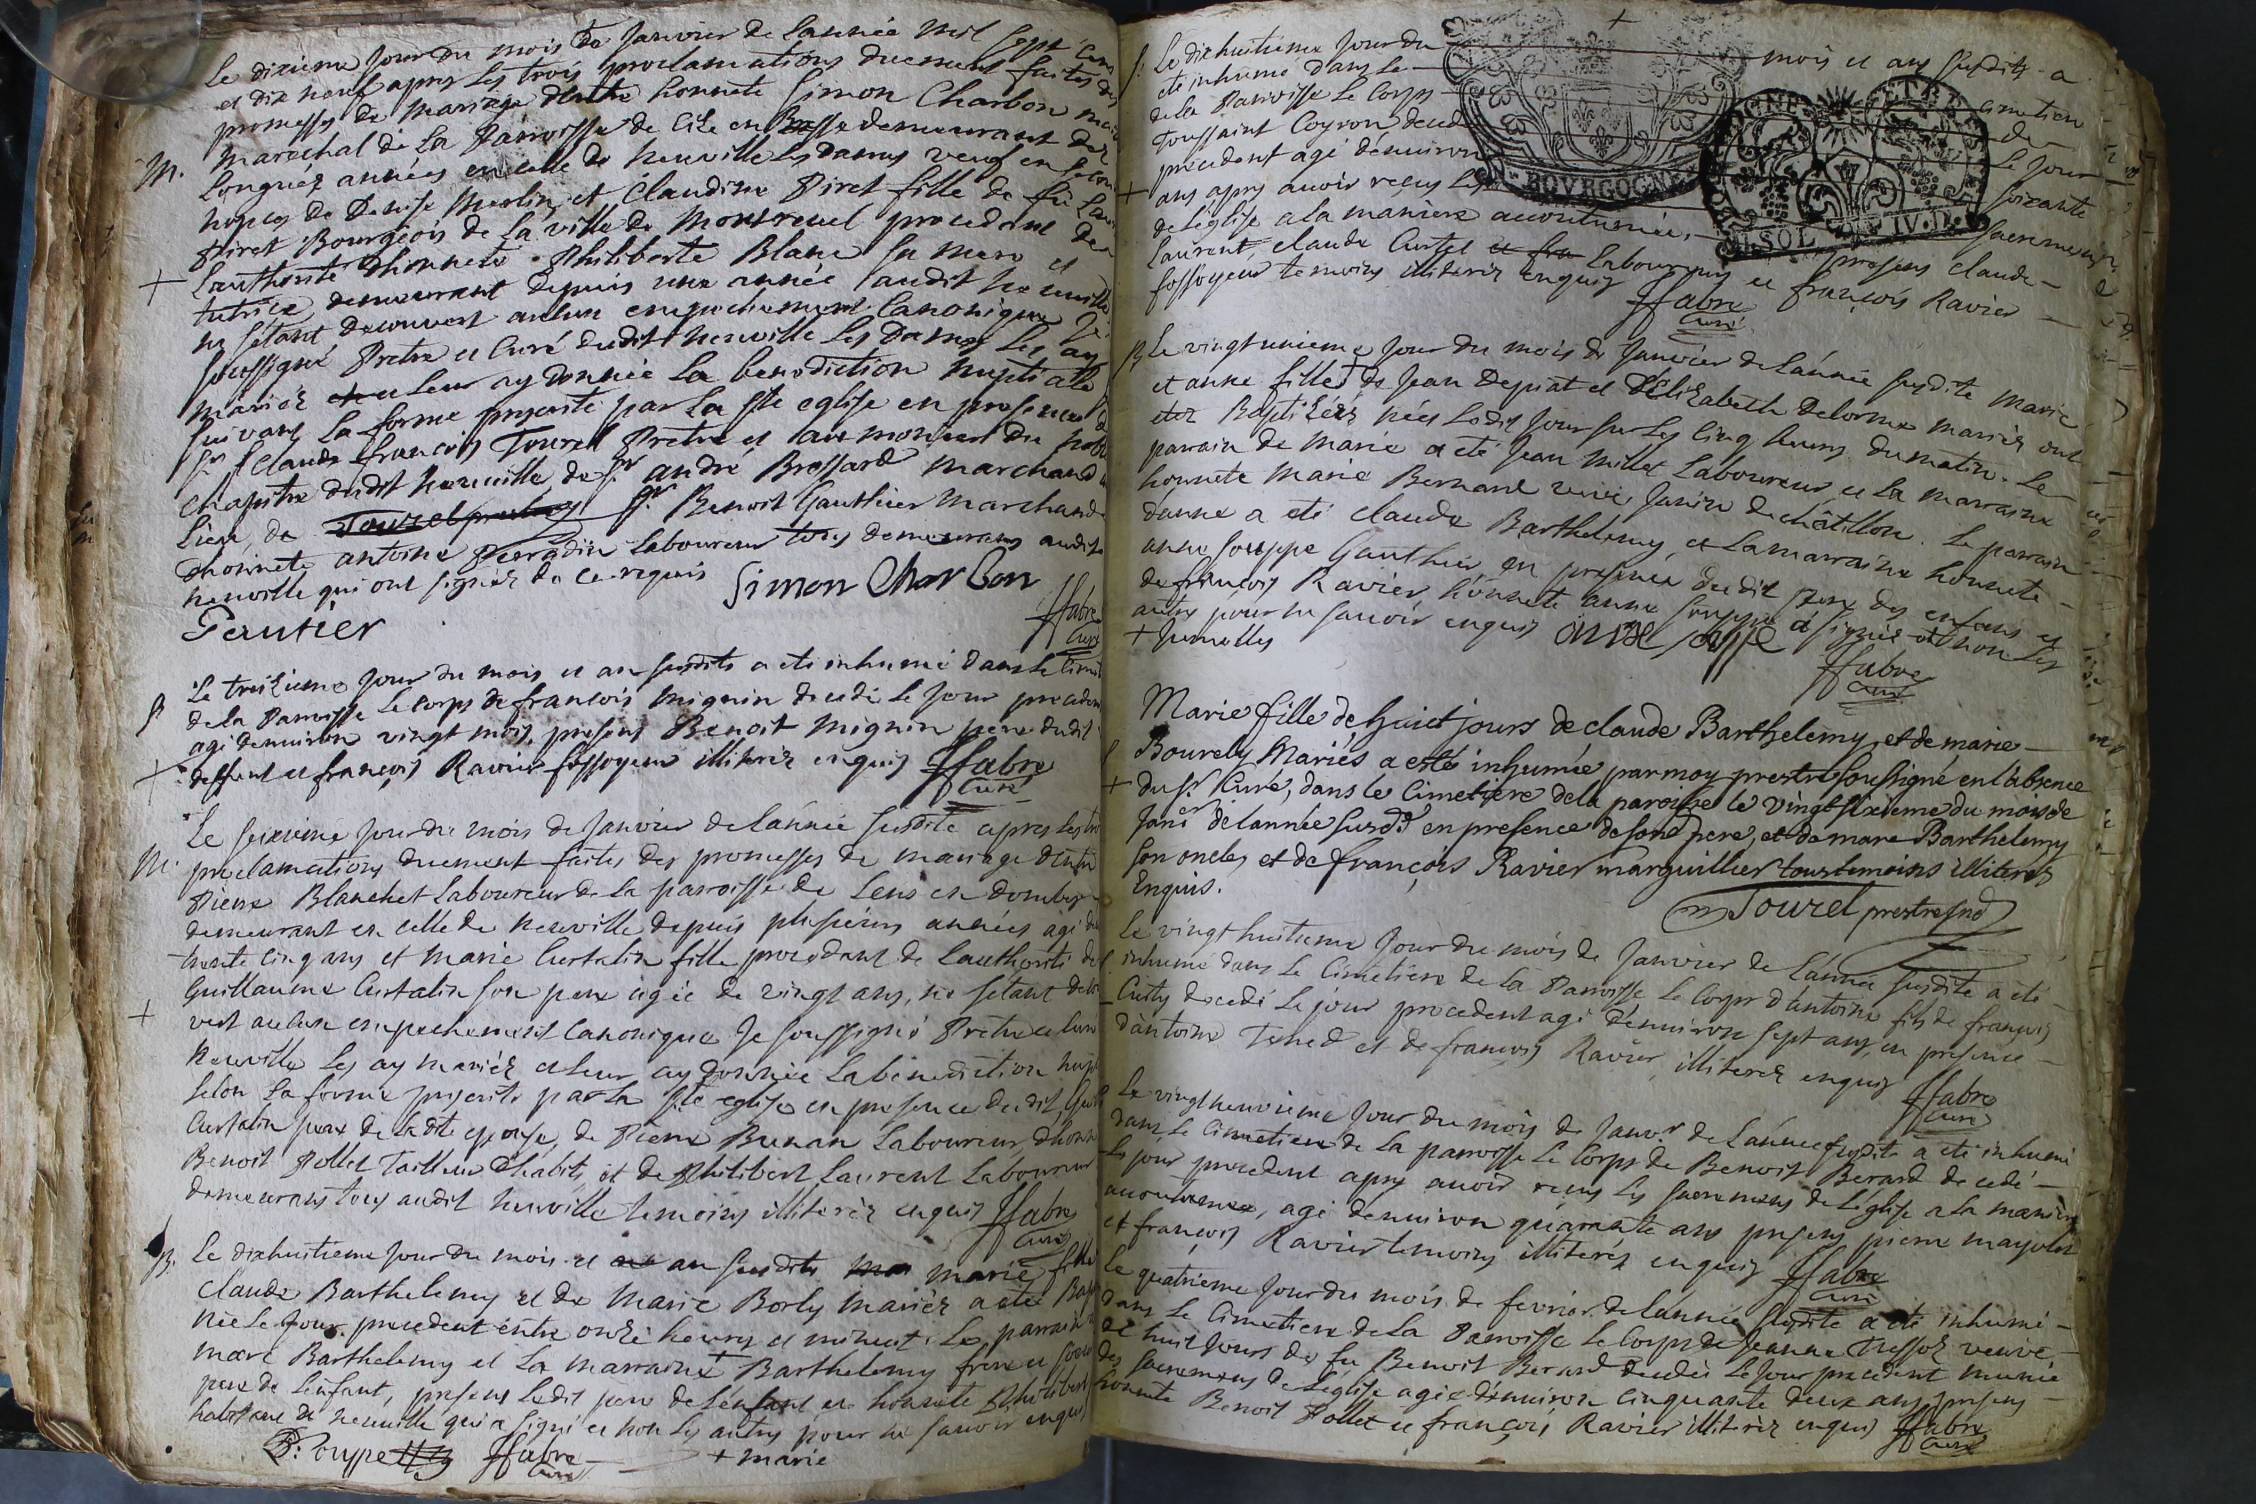 Le dixieme jour du mois de Janvier de lannée mil sept cens
et dix neuf apres les trois proclamations duement faites des
promesses de mariage dentre honnete Simon Charbon
marechal de la Parroisse de Cize en Bresse demeurant des
M. longues années en celle de neuville les dames veuf en secon
nopces de Denise merlin, et Claudine Piret fille de fû
Piret Bourgeois de la ville de montreuel procedant de
lauthorité dhonnete Philiberte Blanc sa mere et
+ tutrice demeurant depuis une année audit neuville
ne sétant decouvert aucun empechement Canonique Je
soussigné Pretre et Curé dudit neuville les Dames les ay
mariéz et leur ay donnée la benediction nuptialle
suivant la forme prescrite par la ste eglise en presence de
sr Claude françois Tourel Pretre et aumonier du noble
Chapitre dudit neuville de sr andré Brossard marchand
lieu, de Tourel prestre sr Benoit Gauthier marchand
dhonnete antoine Perradin laboureur tous demeurans audit
neuville qui ont signéz de ce requis Simon Charbon
Gautier ffabre
Curé
Le treizieme Jour du mois et an susdits a eté inhumé dans le Cimet
S de la Parroisse le corps de francois mignin decedé le jour preceden
agé denuiron vingt mois, presens Benoit mignin pere dudit
+ deffunt et françois Ravier fossoyeur illiteréz enquis ffabre
Curé
Le seizieme Jour du mois de Janvier de lánnée susdite apres les tro
M. proclamations duement faites des promesses de mariage dentre
Pierre Blanchet laboureur de la parroisse de Lens en dombes
demeurant en celle de neuville depuis plusieurs années agé de
trente cinq ans et marie Curtalin fille procedant de lauthorité de
Guillaume Curtalin son pere agée de vingt ans, ne sétant decou
+ vert aucun empechement Canonique Je soussigné Pretre et Curé
neuville les ay mariéz et leur ay donnée la benediction nupt
selon la forme prescrite par la ste eglise en presence dudit Guill
Curtalin pere de ladite epouse, de Pierre Bunan laboureur, dhonn
Benoit Pollet Tailleur dhabits, et de Philibert Laurent laboureur
demeurans tous audit neuville temoins illiteréz enquis ffabre
Curé
B. Le dixhuitieme jour du mois et an susdits marie fille
Claude Barthelemy et de Marie Borly mariéz a eté Bap
née le jour precedent entre onze heures et minuit. Le parrain
marc Barthelemy et la marraine + Barthelemy frere et soeur
pere de l'enfant, presens ledit pere de lénfant et honnete Philibert
habitant de neuville qui a signé et non les autres pour ne savoir enquis
ffabre + marie
Curé
+
S. Le dixhuitieme jour du mois et ans susdits a
eté inhumé dans le cimetiere
de la Parroisse le Corps de
Toussaint Coyron decedé le jour
precedent agé denuiron soixante
+ ans apres auoir reçus les sacremens
de léglise a la maniere accoutumée, presens claude
Laurent, claude Curtet et fra laboureurs et françois Ravier
fossoyeur temoins illiteréz enquis ffabre
Curé
BOVRGOGNE
B Le vingt unieme Jour du mois de Janvier de lánnée susdite Marie
et anne filles + de Jean Depiat et d'Elizabeth Delorme mariéz ont
etez Baptizéés néés ledit jour sur les cinq heures du matin. Le
parrain de marie a eté Jean millet laboureur et la marraine
honnete Marie Bernard veuve Janin de châtillon. Le parrain
d'anne a eté claude Barthelemy, et la marraine honnete
anne souppe Gauthier, en presence dudit pere des enfans et
de françois Ravier, honnete anne souppe a signée et non les
autres pour ne savoir enquis
+ Jumelles ffabre
Curé
Marie fille de huict jours de claude Barthelemy, et de marie
Bourely Mariés a esté inhumée par moy prestre soussigné en l'absence
+ du sr Curé, dans le Cimetiere de la paroisse le vingt sixieme du mois de
Janr de lannée susdte en presence de sond pere, et de marc Barthelemy
son oncle, et de françois Ravier marguillier tous temoins illiterés
Enquis.
Tourel prestre
Le vingt huitieme Jour du mois de Janvier de lánnée susdite a eté
inhumé dans le Cimetiere de la Parroisse le Corps d'antoine fils de françois
decedé le jour precedent agé d'enuiron sept ans, en presence
d'antoine et de françois Ravier, illiteréz enquis ffabre
Curé
Le vingt neuvieme Jour du mois de Janvr de lánnée susdite a eté inhumé
dans le Cimetiere de la parroisse le Corps de Benoit Berard decedé
le jour precedent apres auoir reçus les sacremens de léglise a la maniere
accoutumée, agé denuiron quarante ans presens pierre mayolet
et françois Ravier temoins illiteréz enquis ffabre
Curé
Le quatrieme Jour du mois de fevrier de lannée susdite a eté inhumé
dans le Cimetiere de la Parroisse le Corps de Jeanne veuve
de huit jours de fû Benoit Berard decedée le jour precedent munie
des sacremens de léglise agée denuiron cinquante deux ans presens
honnete Benoit Pollet et françois Ravier illiteréz enquis ffabre
Curé